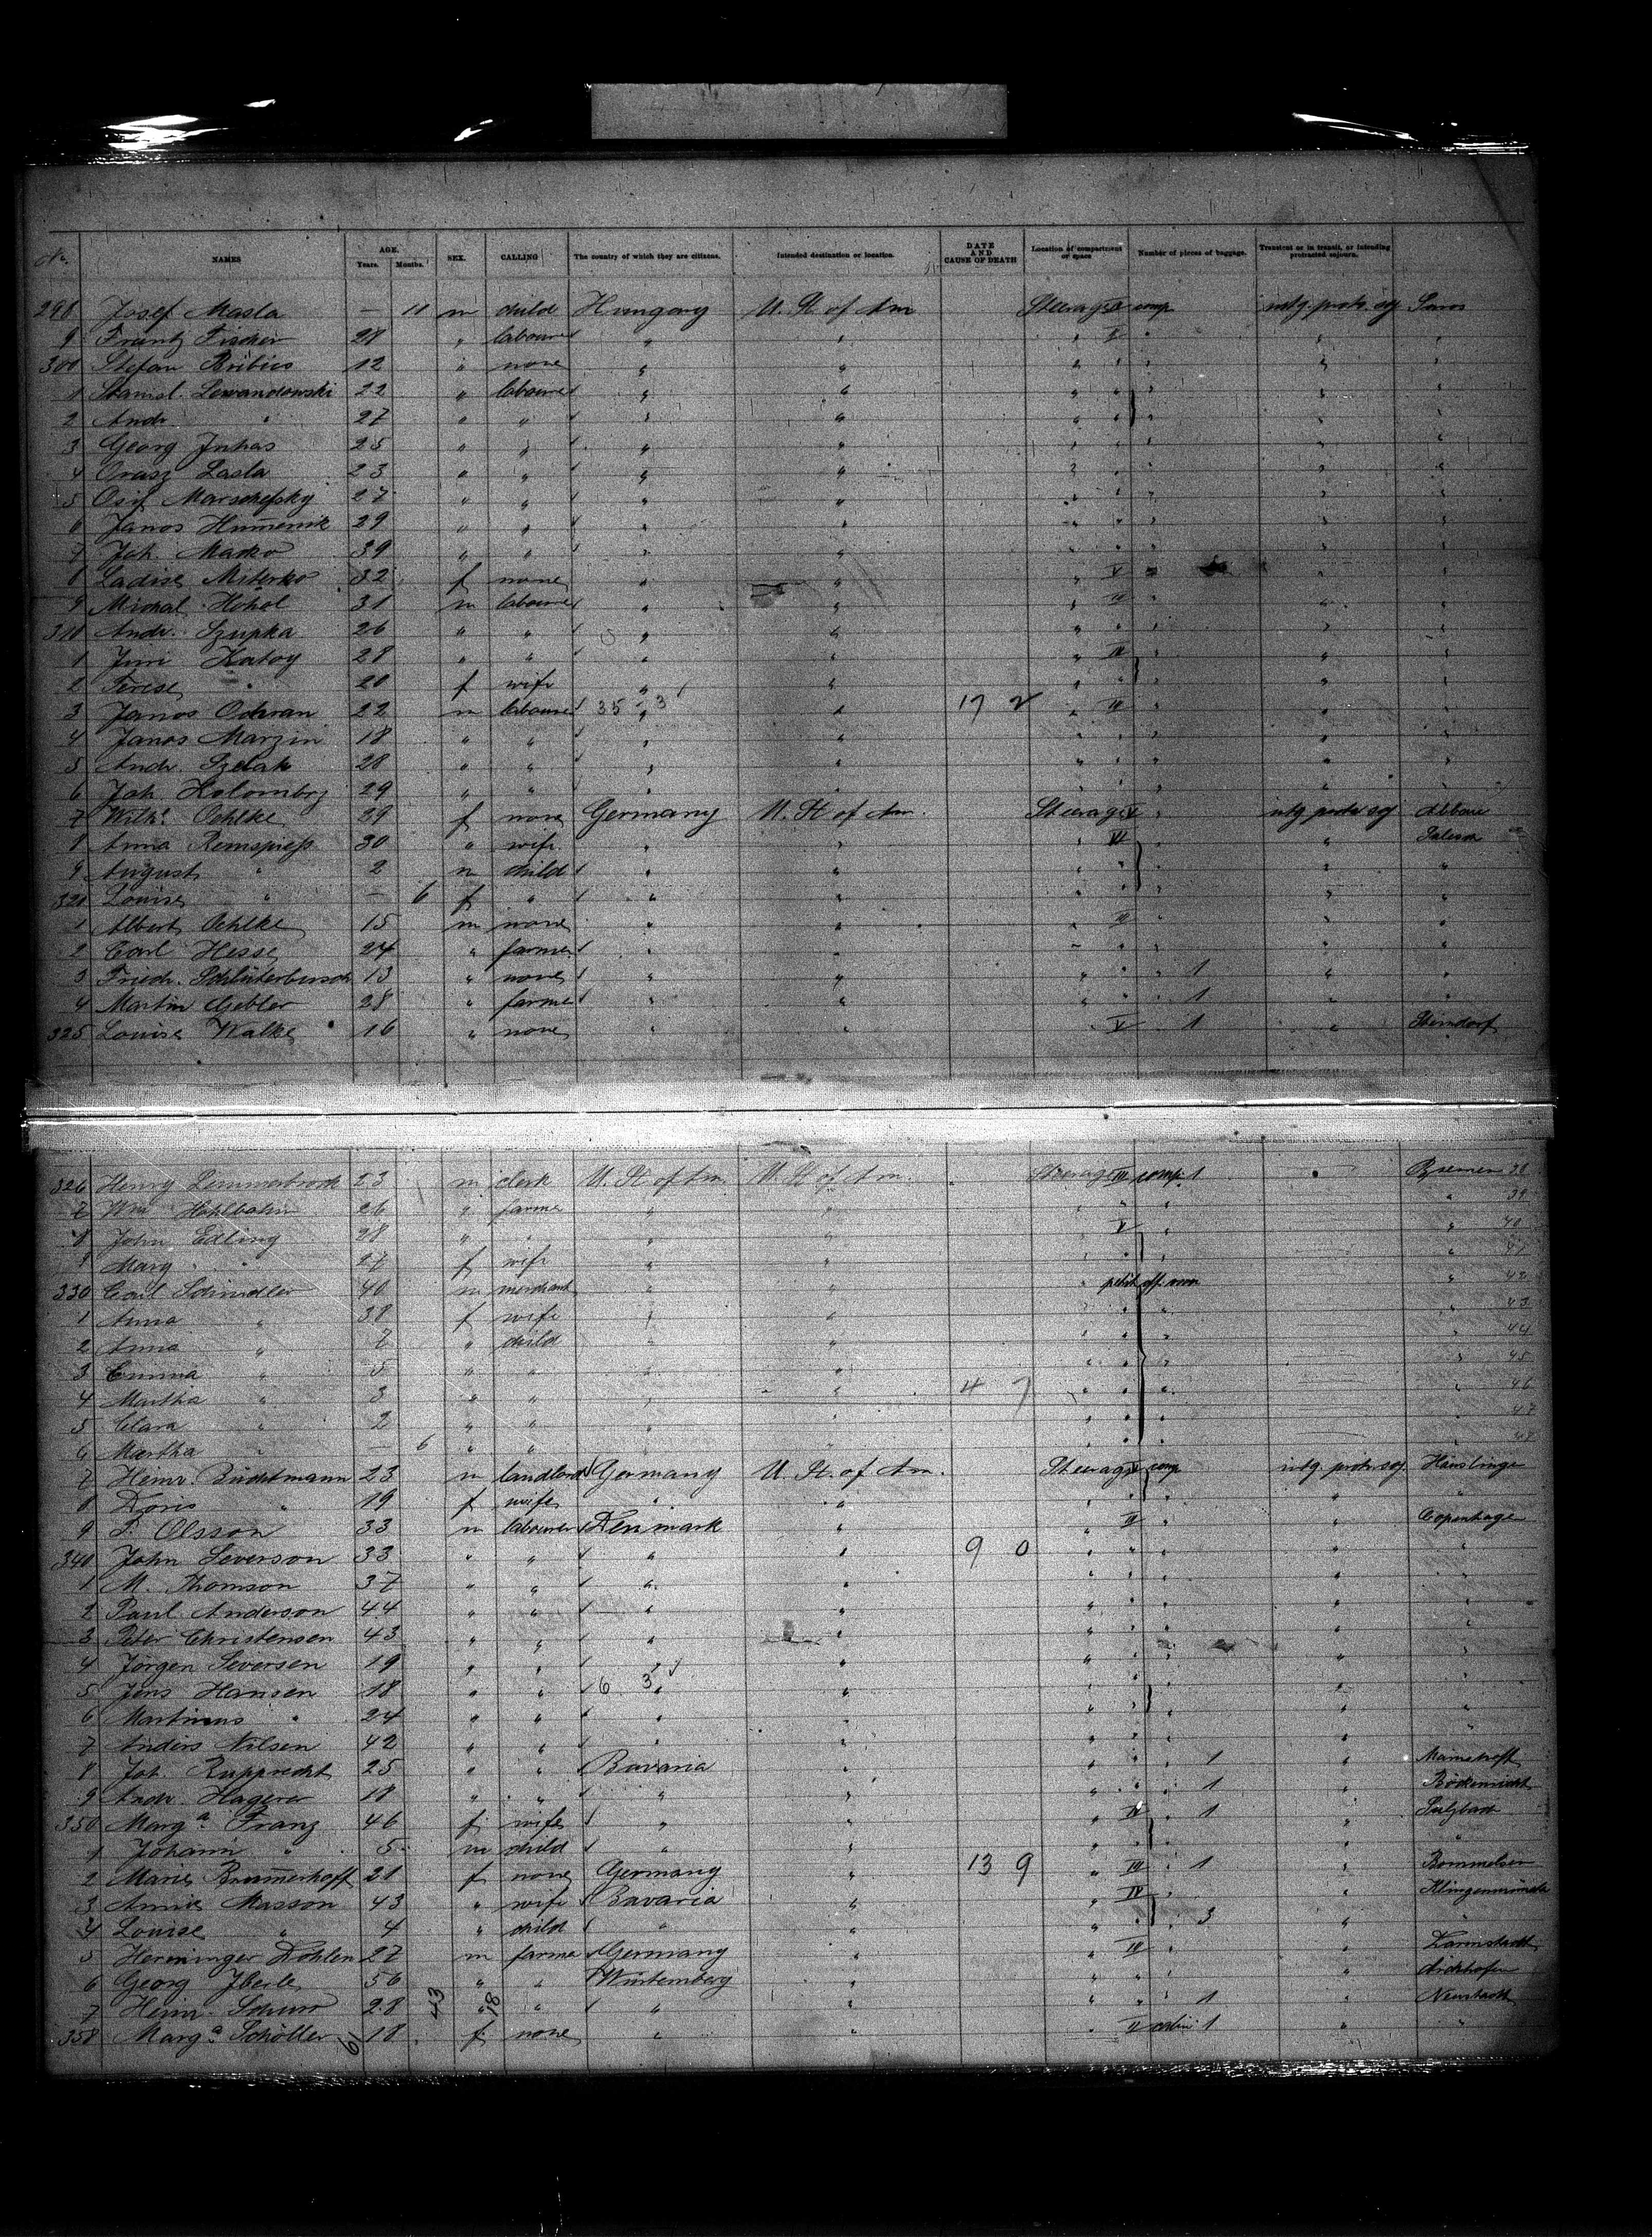 No. NAMES AGE. Years. Months. SEX. CALLING The country of which they are citizens. Intended destination or location. DATE AND CAUSE OF DEATH Location of compartment or space Number of pieces of baggage. Transient or in transit, or intending protracted sojourn.
298 Josef Masla — 11 m child Hungary U. St of Am Steerage comp intg. protr. soj Saros
9 Frantz Fischer 28 " labourer " "
300 Stefan 12 " none " "
1 Stanisl. Lewandowski 22 " labourer " "
2 Andr " 27 " " " "
3 Georg Juhas 25 " " " "
4 Orasz Lasla 23 " " " "
5 Osif Marschefsky 27 " " " "
6 Janos Humenik 29 " " " "
7 Joh. Marko 39 " " " "
8 Ladise Miterko 32 f none " " " V
9 Michal Hohol 31 m labourer " "
310 Andr. Szupka 26 " " " "
1 Katoy 28 " " " " " IV
2 Terese " 20 f wife " "
3 Janos Ochran 22 m labourer 35 - 3 " 17 2
4 Janos Marzin 18 " " " "
5 Andr. Szelak 28 " " " "
6 Joh Holombrj 29 " " " "
7 Wilh.e Oehlke 29 f none Germany U. St of Am. Steerage intg protr soj
8 Anna Remspiess 30 " wife " " " VI
9 August " 2 m child " "
320 Louise " — 6 f " " "
1 Albert Oehlke 15 m none " "
2 Carl Hesse 24 " farmer " "
3 Friedr. Schlüterbusch 13 " none " " " " 1
4 Martin Gebler 28 " farmer " " " " 1
325 Louise Walke 16 " none " " " V 1 " Steindorf
326 Henry Lemmerbrock 23 m clerk U. St of Am. U. St of Am. Steerage III comp. 1 Bremen 38
7 Wm Hohlbohn 26 " farmer " " " 39
8 John Edling 28 " " " " " V " 40
9 Mary " 27 f wife " " " 41
330 Carl Schindler 40 m merchant " " " off. room " 42
1 Anna " 38 f wife " " " 43
2 Anna " 7 " child " " " 44
3 Emma " 5 " " " " " 45
4 Martha " 3 " " " " 4 7 " 46
5 Clara " 2 " " " " " 47
6 Martha " — 6 " " " " " 48
7 Heinr. Büchtmann 23 m landlord Germany U. St. of Am. Steerage comp intg. protr. soj. Häuslingen
8 Dores " 19 f wife " "
9 P. Olsson 33 m labourer Denmark " " Copenhage
340 John Severson 33 " " " " 9 0
1 M. Thomson 37 " " " "
2 Paul Anderson 44 " " " "
3 Peter Christensen 43 " " " "
4 Jörgen Seversen 19 " " " "
5 Jens Hansen 18 " " 6 3 "
6 Martinus " 24 " " " "
7 Anders Nilsen 42 " " " "
8 Joh. Rupprecht 25 " " Bavaria " " " 1 "
9 Andr. Hagerer 18 " " " " " " 1 "
350 Marg.a Franz 46 f wife " " " IV 1 " Sulzbach
1 Johann " 5 m child " " "
2 Marie Brümerhoff 21 f none Germany " 13 9 " 1 " Bommelsen
3 Annie Masson 43 " wife Bavaria " " IV " Klingenmünster
4 Louise " 4 " child " " " 3 " "
5 Herninger Dohlen 27 m farmer Germany " " " Darmstadt
6 Georg Jberle 56 " " Würtemberg " " "
7 Heinr. 28 43 " 18 " " " " 1 " Neustadt
358 Marg.a Schöller 18 61 f none " " " 1 " "